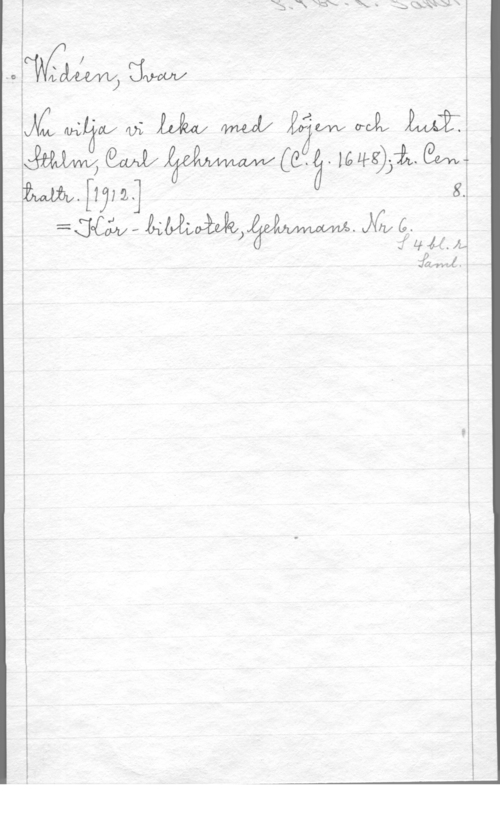 Widéen, Ivar
Nu vilja vi leka med löjen och lust.
Sthlm, Carl Gehrman (C. G. 1648); tr. Cen-
traltr. [1912.] 8.
= Kör-bibliotek, Gehrmans. Nr 6.
S 4 bl. r.
Saml.